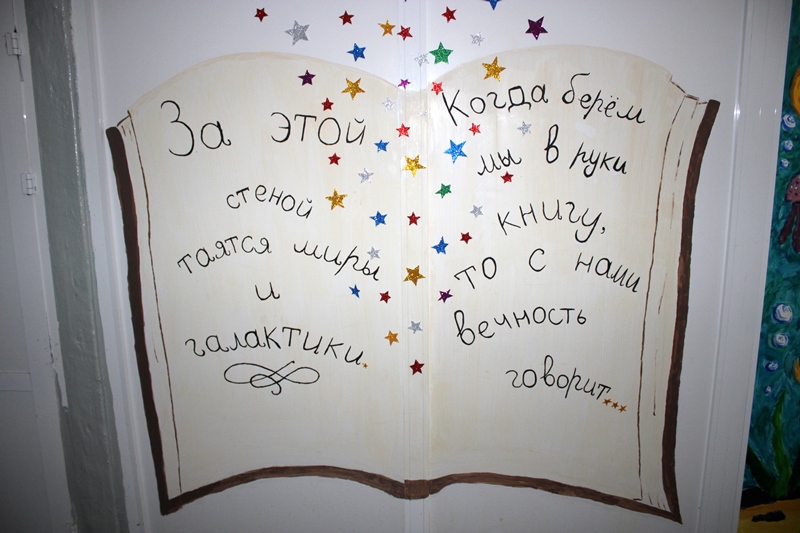 За этой
стеной
таятся миры
и
галактики.
Когда берём
мы в руки
книгу,
то с нами
вечность
говорит...